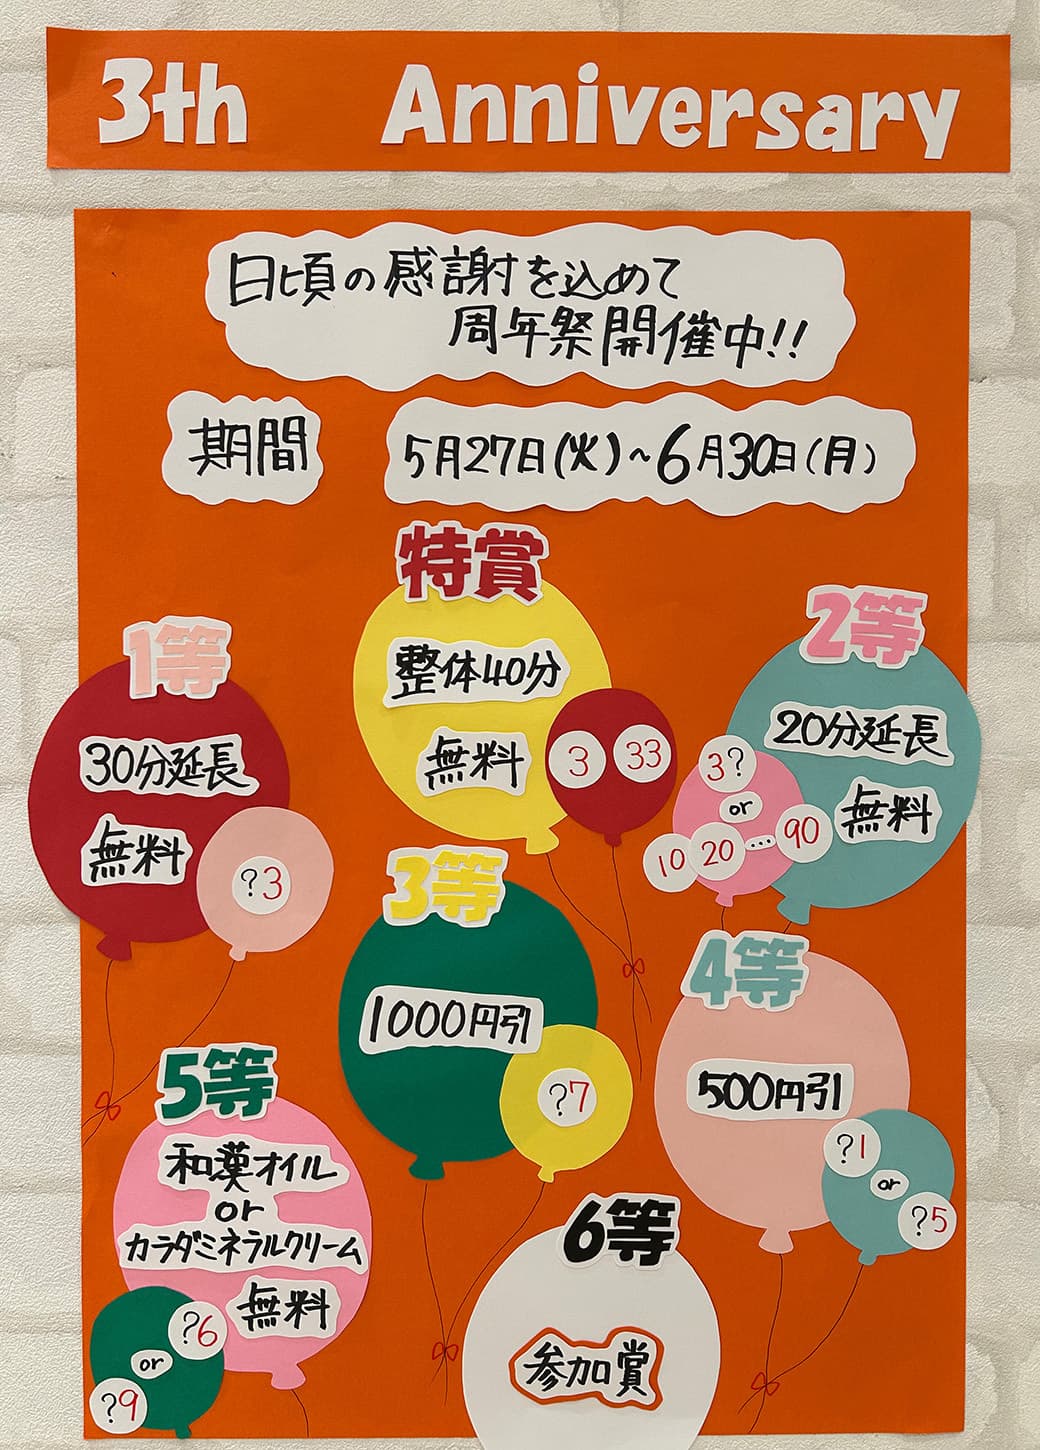 3th Anniversary
日頃の感謝を込めて
周年祭開催中!!
期間 5月27日(火)~6月30日(月)
特賞
整体40分
無料
3 33
1等
30分延長
無料
?3
2等
20分延長
無料
3?
or
10 20 … 90
3等
1000円引
?7
4等
500円引
?1
or
?5
5等
和漢オイル
or
カラダミネラルクリーム
無料
?6
or
?9
6等
参加賞